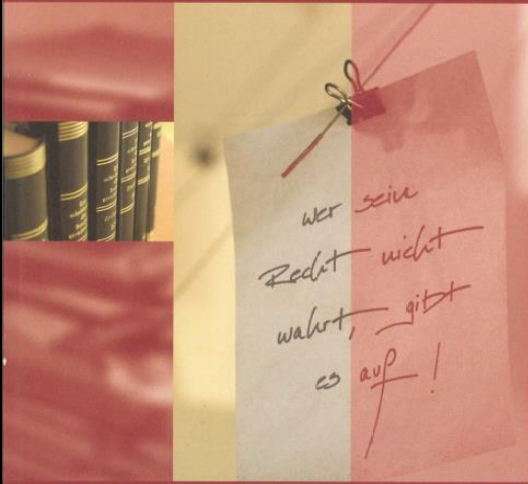 wer sein
Recht nicht
wahrt, gibt
es auf!